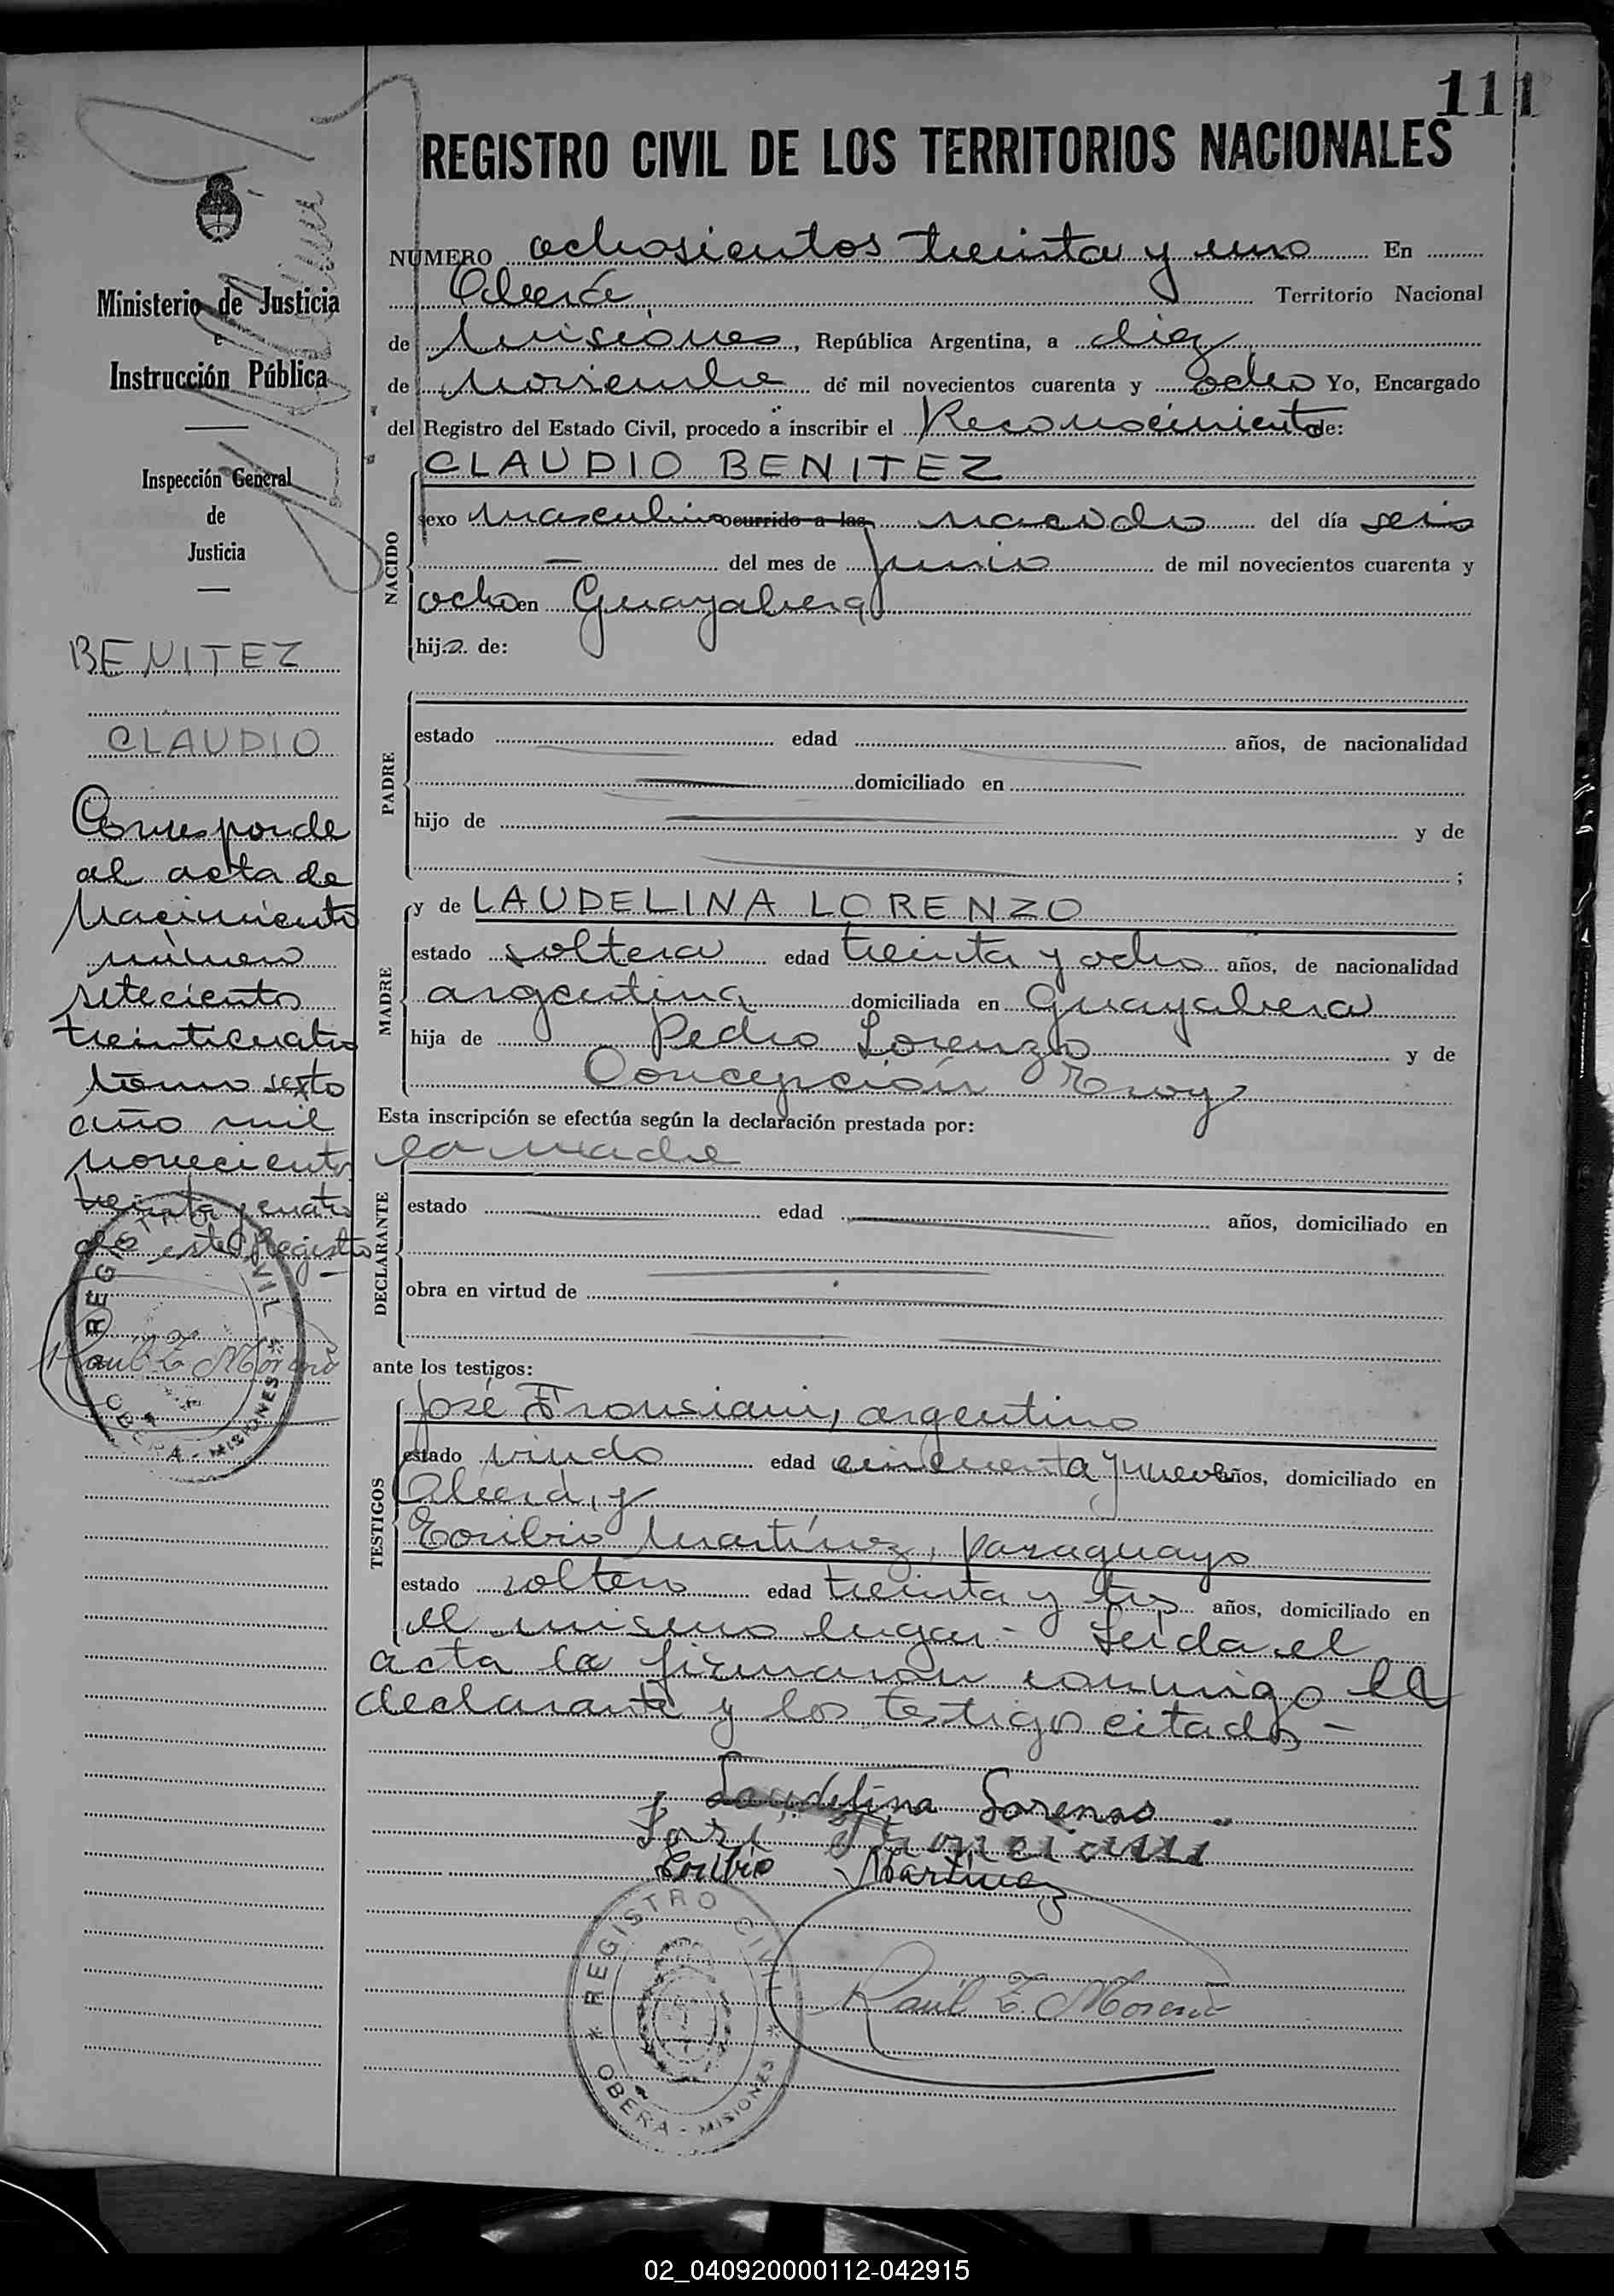 111
REGISTRO CIVIL DE LOS TERRITORIOS NACIONALES
Ministerio de Justicia
e
Instrucción Pública
Inspección General
de
Justicia
BENITEZ
CLAUDIO
Corresponde
al acta de
Nacimiento
número
seteciento
treinticuatro
tomo sexto
año mil
novecientos
treinta y cuatro
de este Registro
Raúl Z Moreno
REGISTRO CIVIL
OBERA - MISIONES
NUMERO ochosientos treinta y uno En
Oberá Territorio Nacional
de Misiones, República Argentina, a diez
de Noviembre de mil novecientos cuarenta y ocho Yo, Encargado
del Registro del Estado Civil, procedo a inscribir el Reconocimiento de:
CLAUDIO BENITEZ
NACIDO
sexo Masculino ocurrido a las nacido del día seis
del mes de junio de mil novecientos cuarenta y
ocho en Guayabera
hijo de:
PADRE
estado edad años, de nacionalidad
domiciliado en
hijo de y de
;
MADRE
y de LAUDELINA LORENZO
estado soltera edad treinta y ocho años, de nacionalidad
argentina domiciliada en Guayabera
hija de Pedro Lorenzo y de
Concepción
Esta inscripción se efectúa según la declaración prestada por:
la madre
DECLARANTE
estado edad años, domiciliado en
obra en virtud de
ante los testigos:
TESTIGOS
José Fronsiani, argentino
estado viudo edad cincuenta y nueve años, domiciliado en
Oberá, y
Toribio Martínez, paraguayo
estado soltero edad treinta y tres años, domiciliado en
el mismo lugar.- Leída el
acta la firmaron conmigo el
declarante y los testigos citados-
Laudelina Lorenso
José
Toribio Martinez
Raúl Z. Moreno
REGISTRO CIVIL
OBERA - MISIONES
02_040920000112-042915